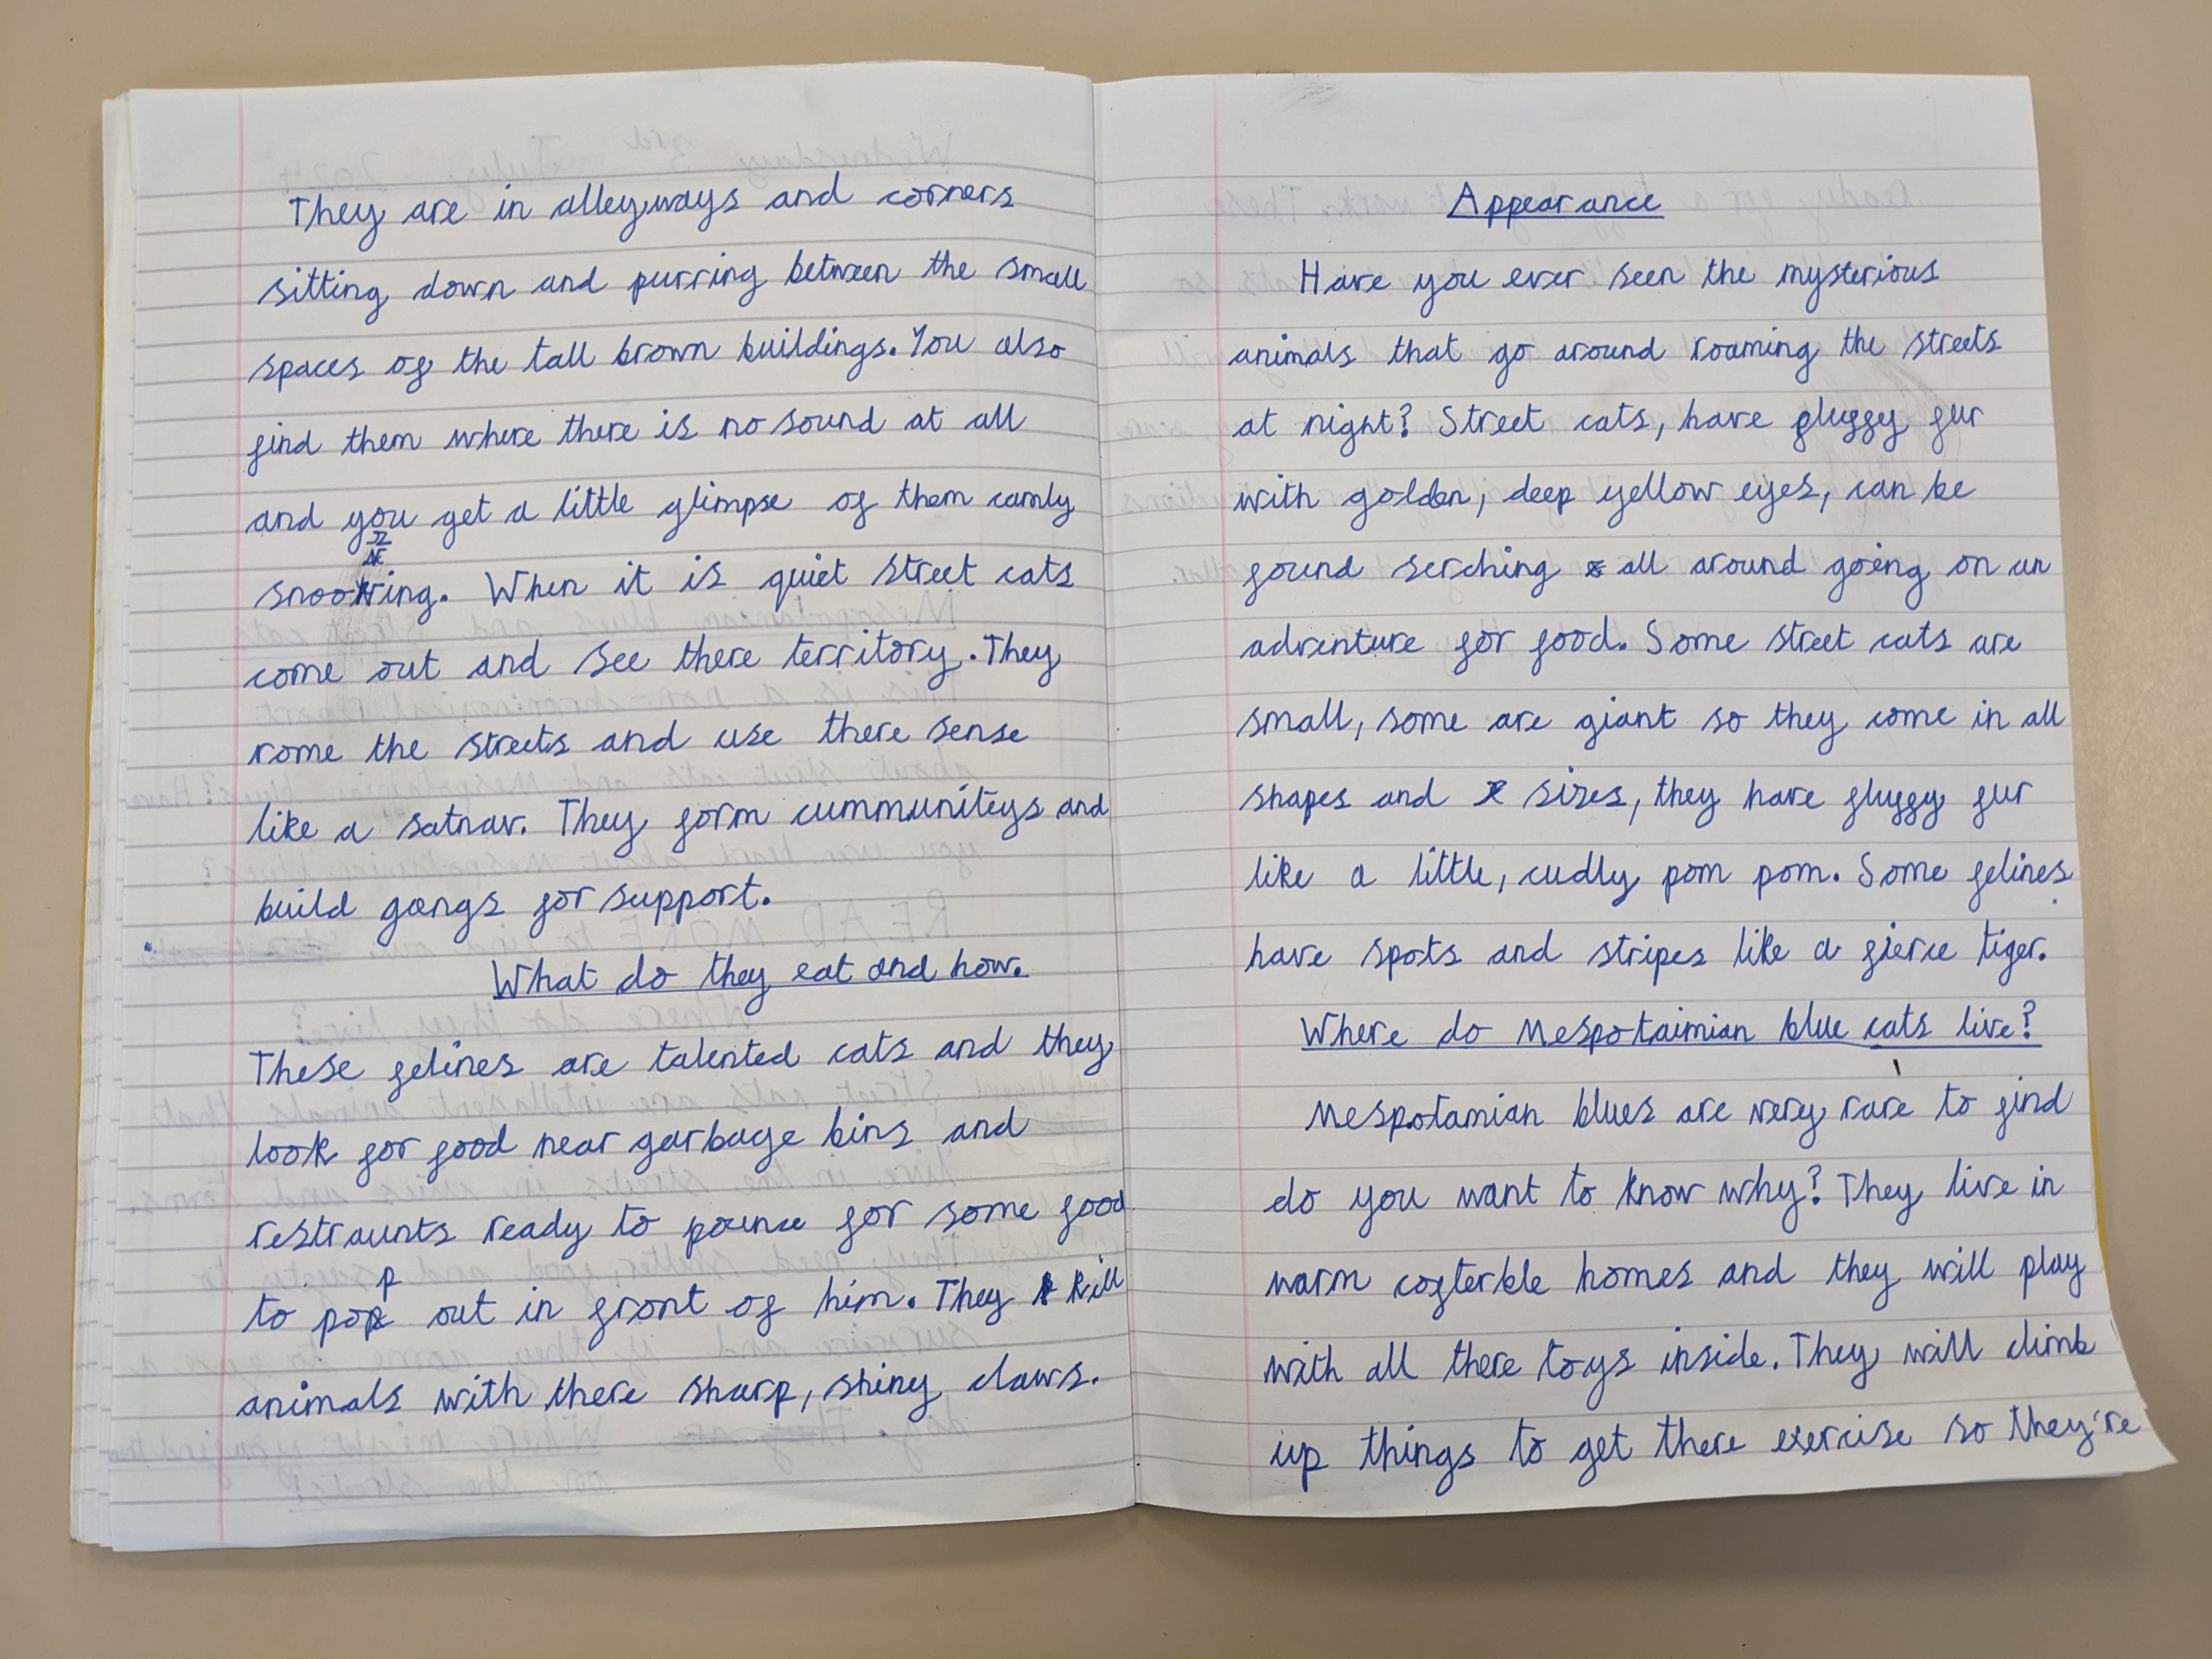 They are in alleyways and corners
sitting down and purring between the small
spaces of the tall brown buildings. You also
find them where there is no sound at all
and you get a little glimpse of them camly
snooring. When it is quiet street cats
come out and see there territory. They
rome the streets and use there sense
like a satnav. They form cummuniteys and
build gangs for support.
What do they eat and how.
These felines are talented cats and they
look for food near garbage bins and
restraunts ready to pounce for some food
to pop out in front of him. They kill
animals with there sharp, shiny claws.
Appearance
Have you ever seen the mysterious
animals that go around roaming the streets
at night? Street cats, have fluffy fur
with golden, deep yellow eyes, can be
found serching all around going on an
adventure for food. Some street cats are
small, some are giant so they come in all
shapes and sizes, they have fluffy fur
like a little, cudly pom pom. Some felines
have spots and stripes like a fierce tiger.
Where do Mespotaimian blue cats live?
Mespotamian blues are very rare to find
do you want to know why? They live in
warm cofterble homes and they will play
with all there toys inside. They will climb
up things to get there exercise so they're